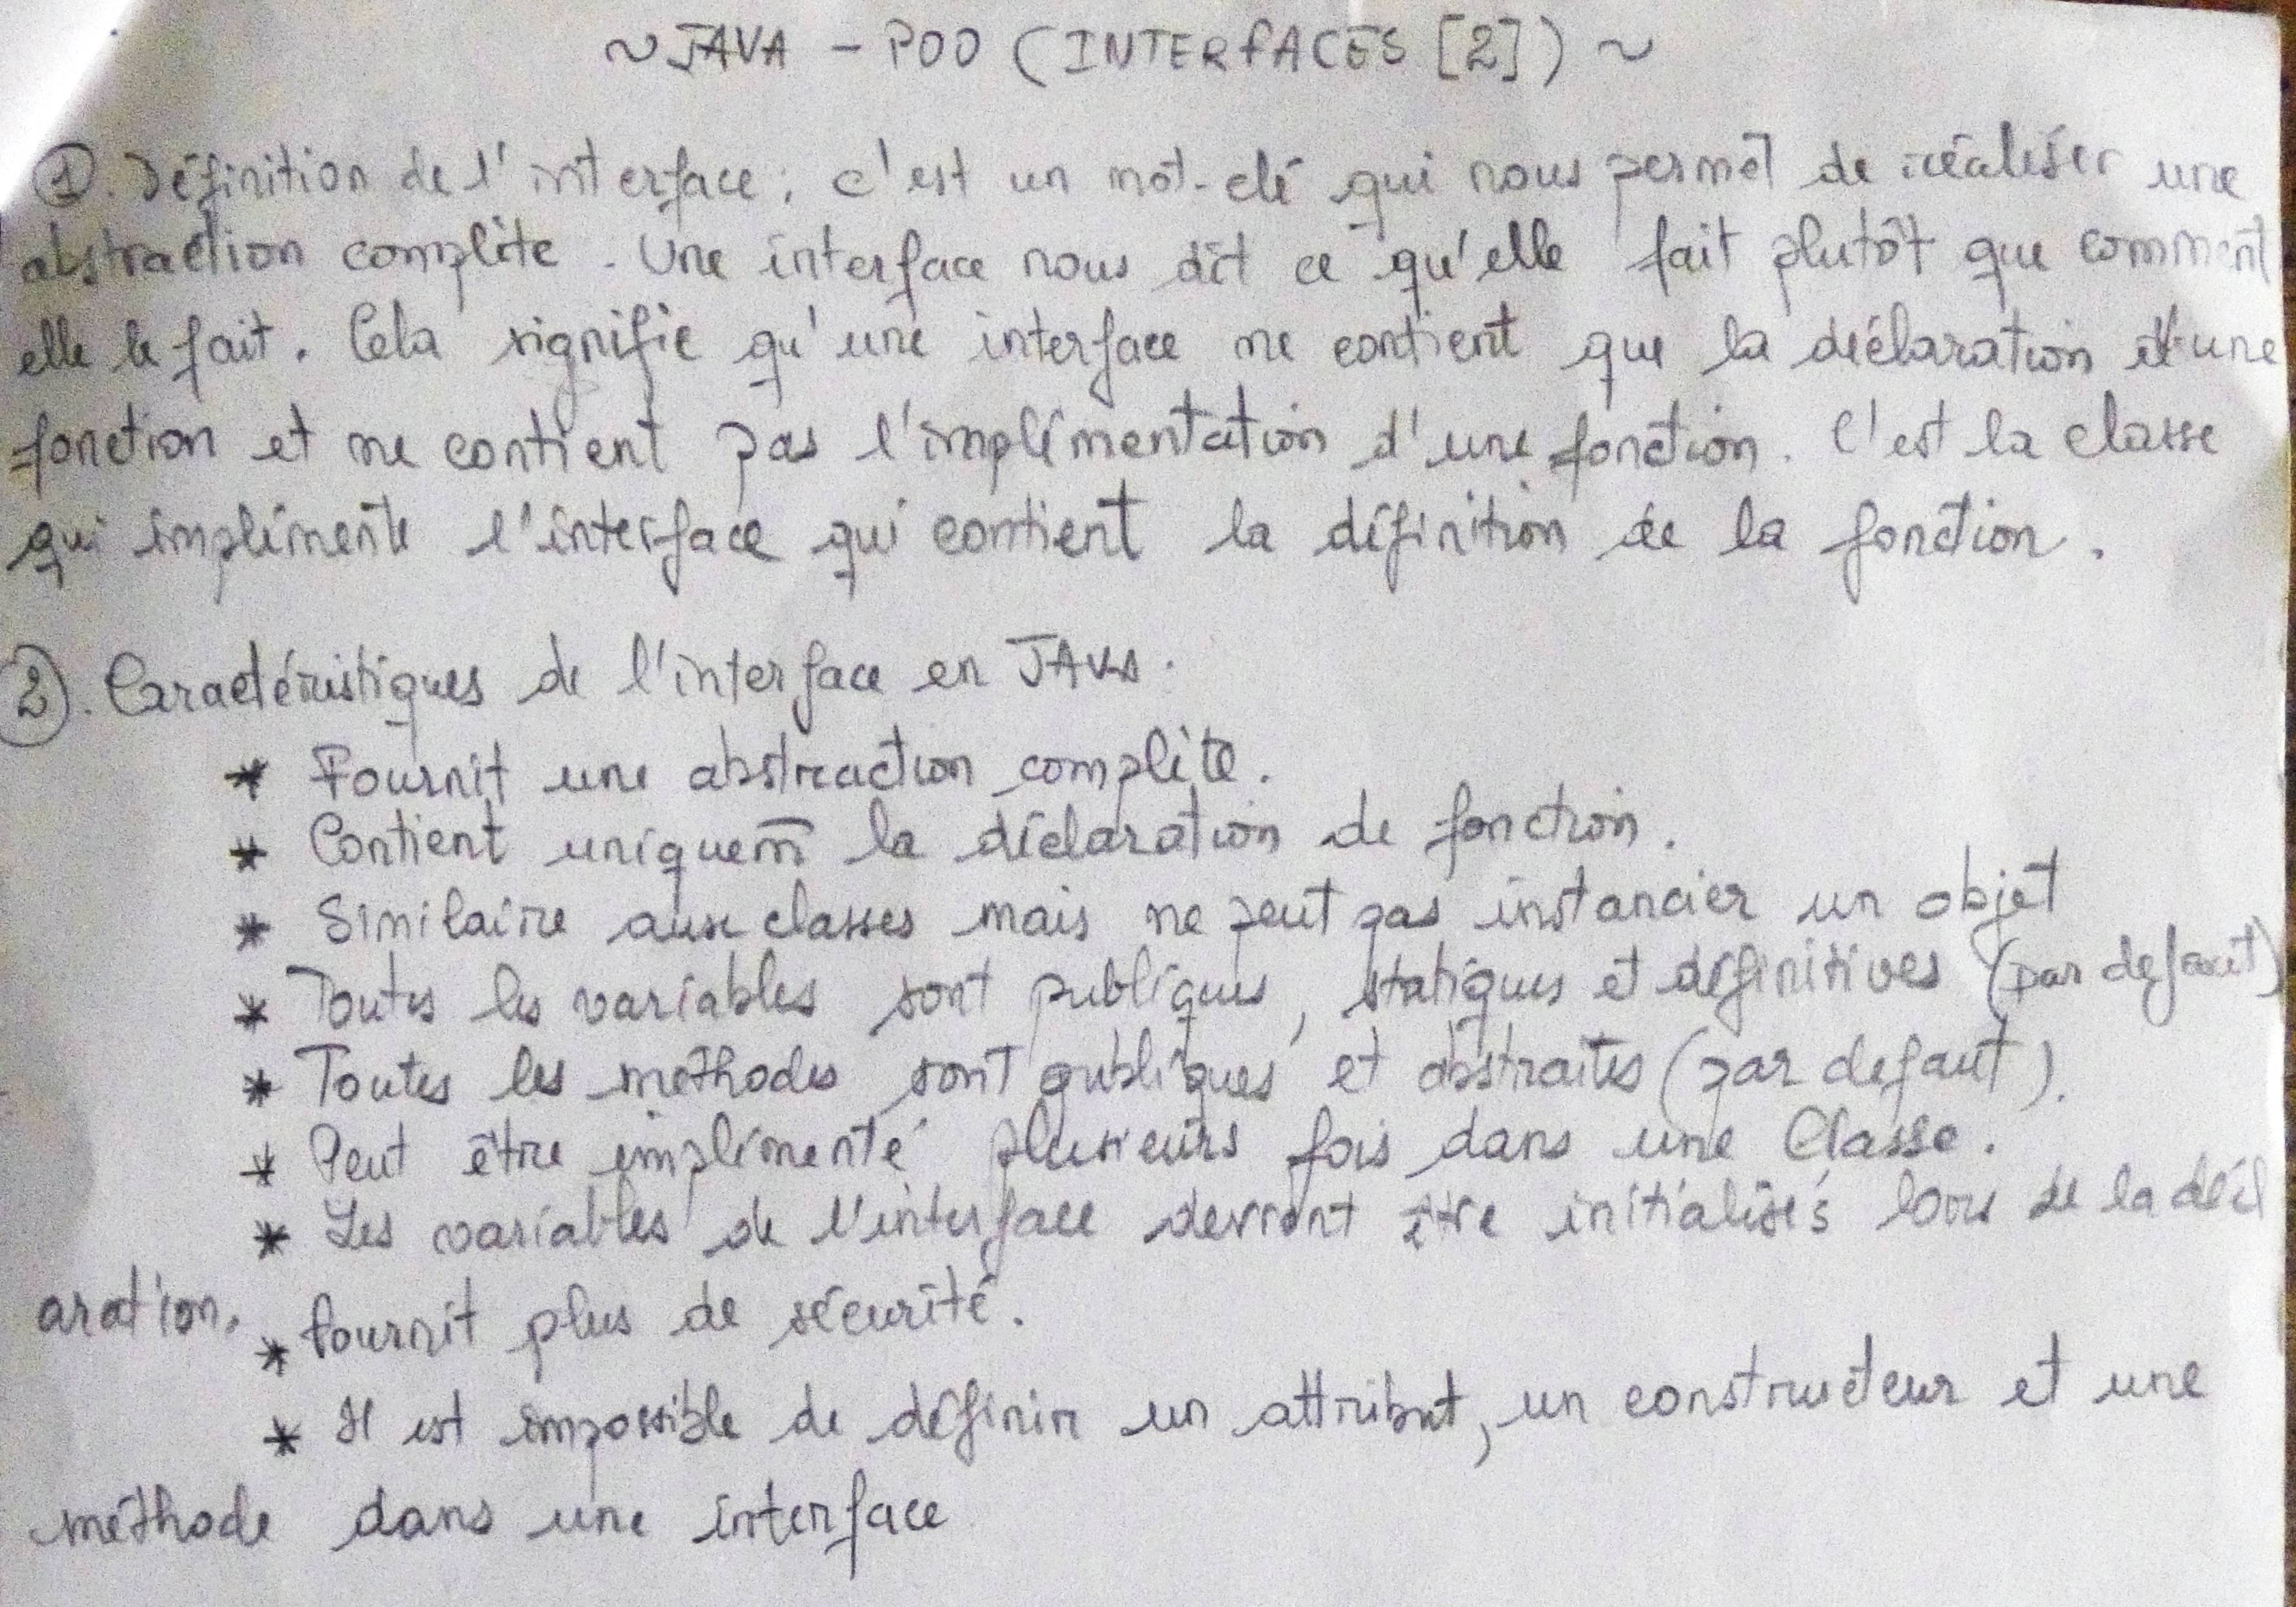 ~ JAVA - POO (INTERFACES [2]) ~
①. Définition de l'interface : c'est un mot-clé qui nous permet de réaliser une
abstraction complète. Une interface nous dit ce qu'elle fait plutôt que comment
elle le fait. Cela signifie qu'une interface ne contient que la déclaration d'une
fonction et ne contient pas l'implémentation d'une fonction. C'est la classe
qui implémente l'interface qui contient la définition de la fonction.
②. Caractéristiques de l'interface en JAVA.
* Fournit une abstraction complète.
* Contient uniquem̅ la déclaration de fonction.
* Similaire aux classes mais ne peut pas instancier un objet
* Toutes les variables sont publiques, statiques et définitives (par defaut)
* Toutes les méthodes sont publiques et abstraites (par defaut).
* Peut être implémenté plusieurs fois dans une Classe.
* Les variables de l'interface devront être initialisés lors de la décl
aration.
* Fournit plus de sécurité.
* Il est impossible de définir un attribut, un constructeur et une
méthode dans une interface